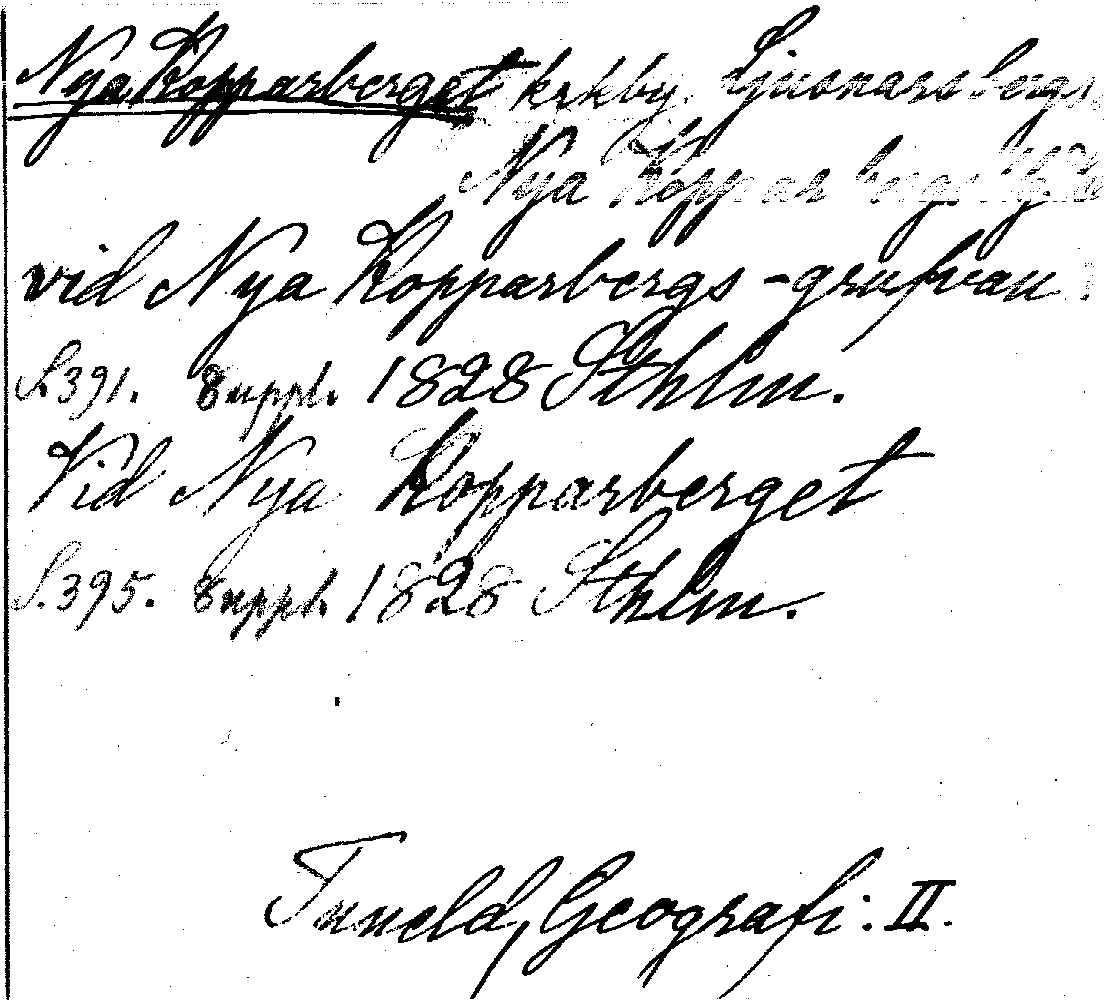 Nya Kopparberget krkby. Ljusnarsbergs
Nya Kopparbergs
vid Nya Kopparbergs-grufvan.
S.391. Suppl. 1828 Sthlm.
Vid Nya Kopparberget
S.395. Suppl. 1828 Sthlm.
Tuneld, Geografi: II.